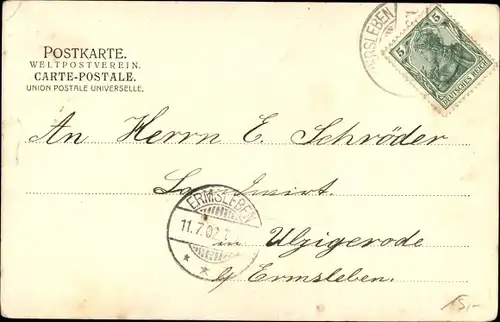 POSTKARTE.
WELTPOSTVEREIN.
CARTE-POSTALE.
UNION POSTALE UNIVERSELLE.
ERMSLEBEN
5 5
DEUTSCHES REICH
An Herrn E. Schröder
Landwirt.
ERMSLEBEN
11.7.02
in Ulzigerode
b/ Ermsleben.
15,-